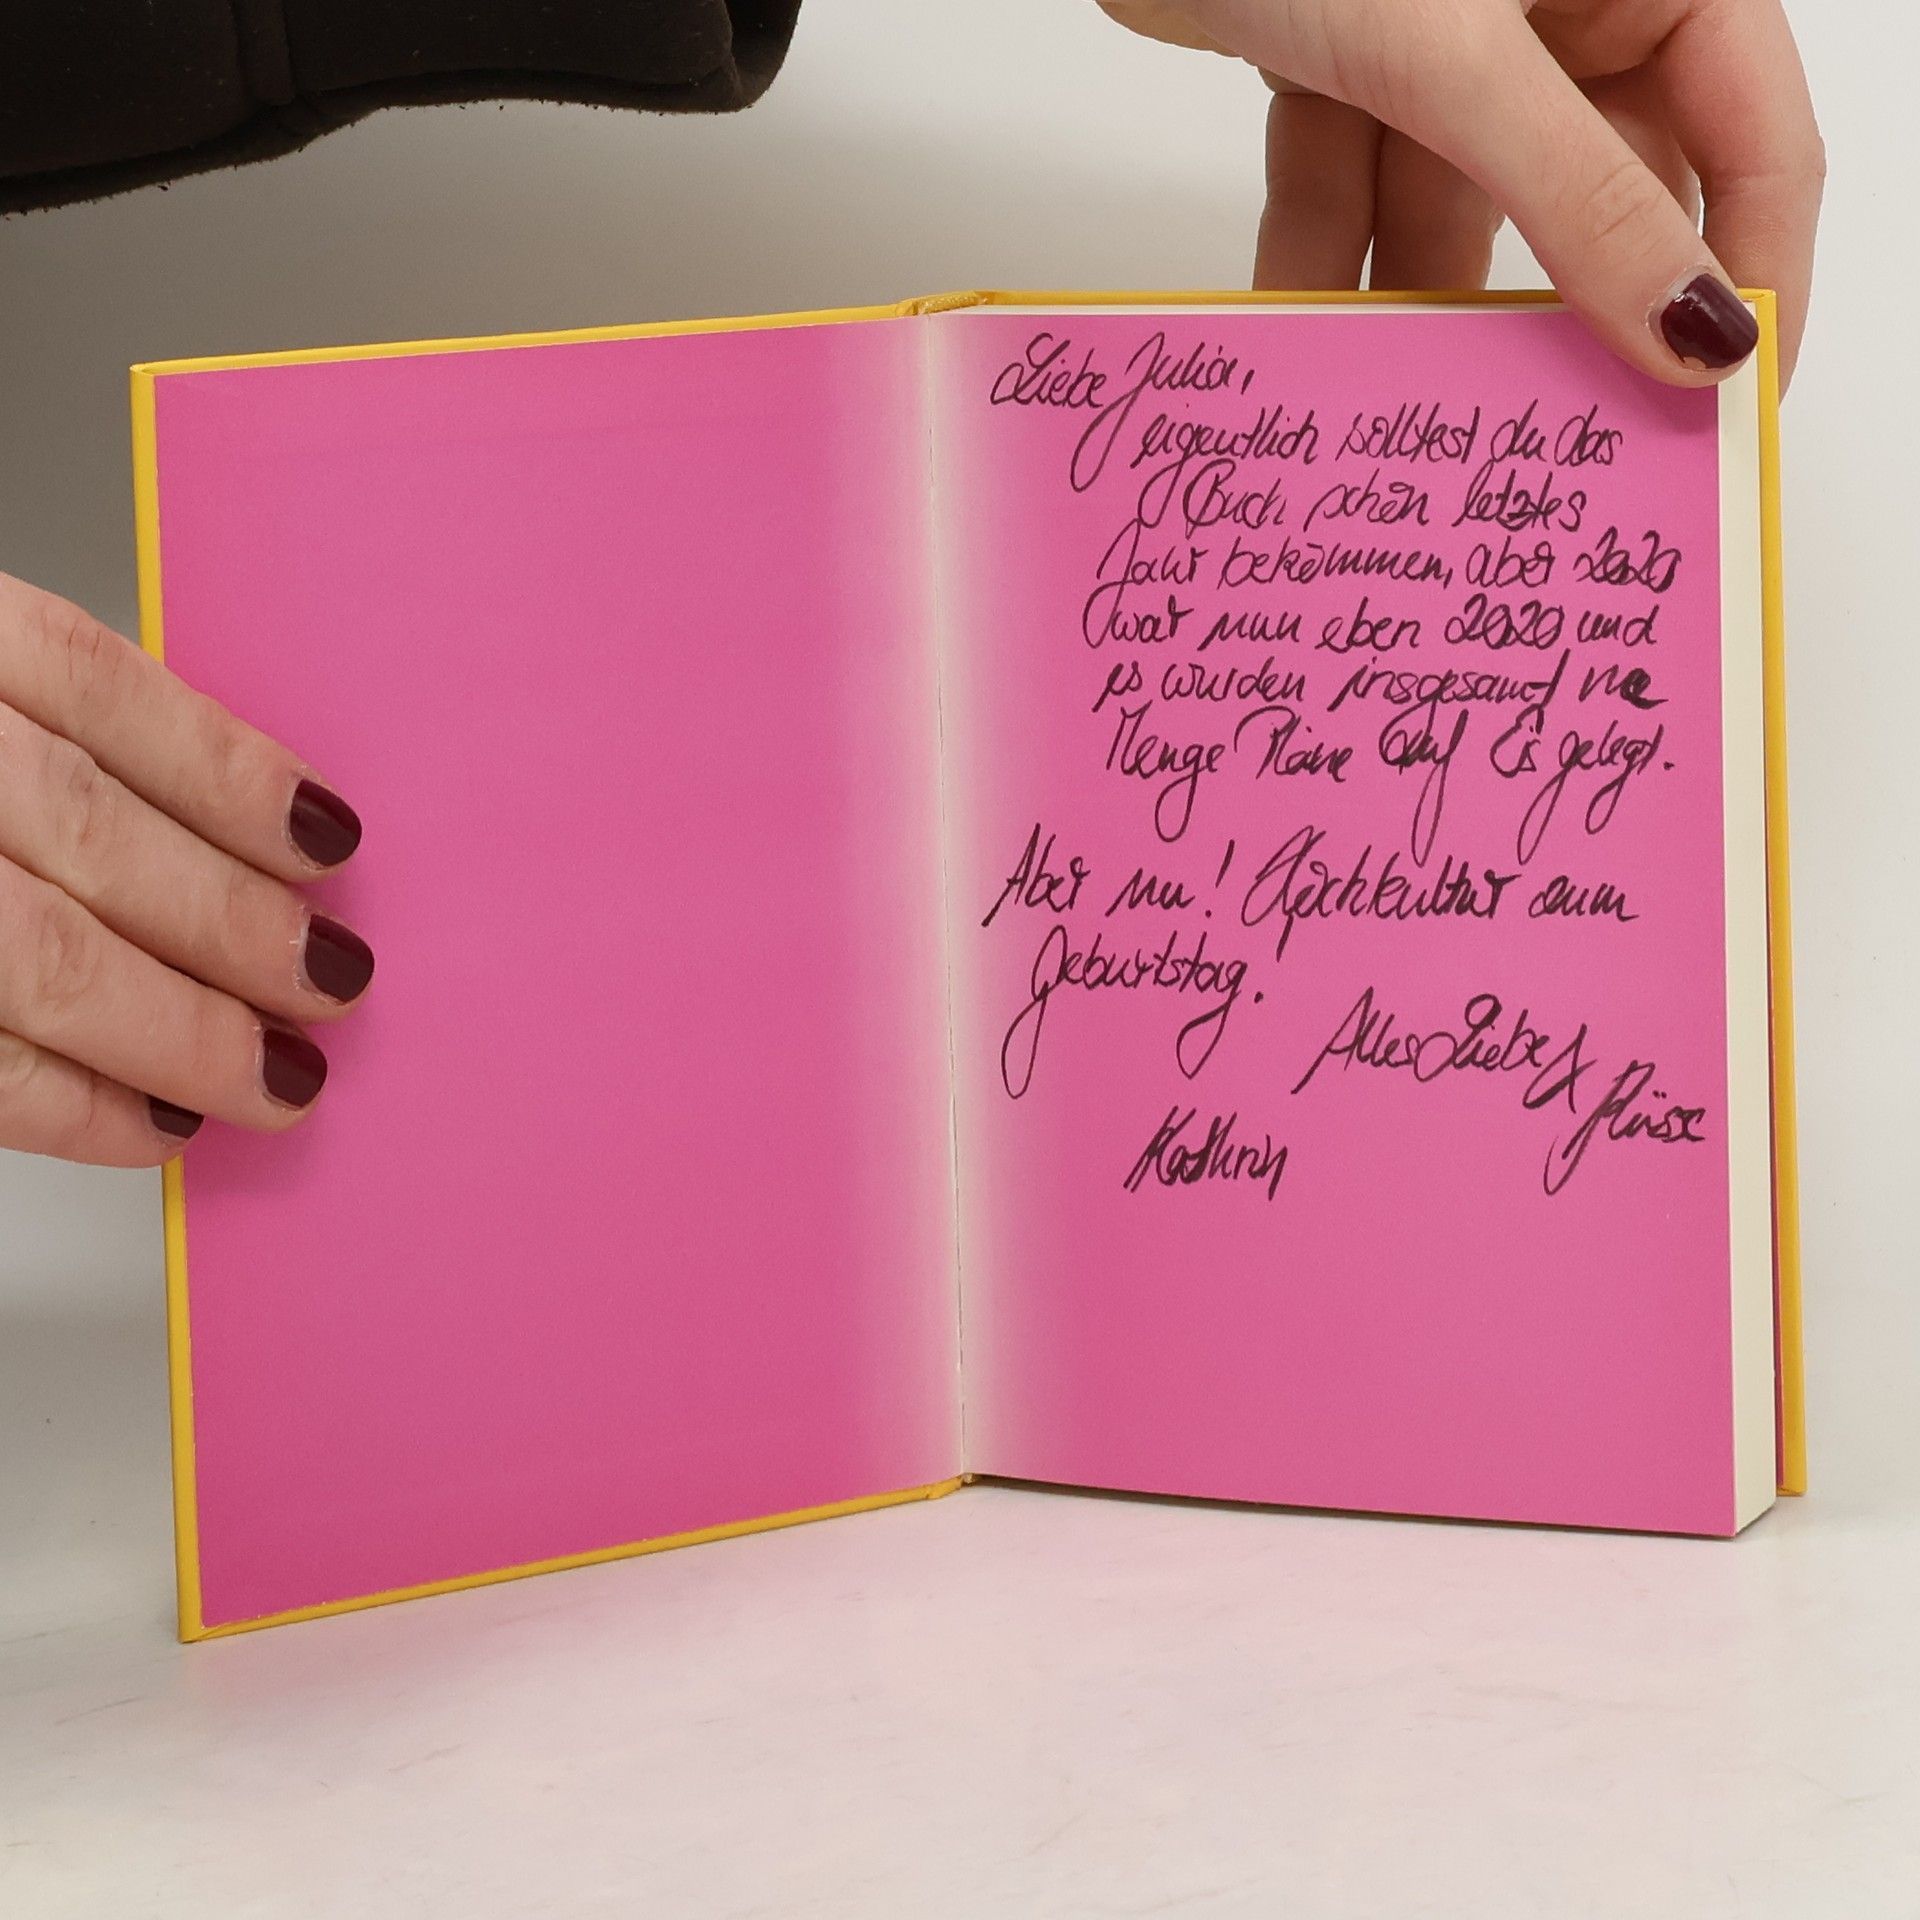 Liebe Julia,
eigentlich solltest du das
Buch schon letztes
Jahr bekommen, aber 2020
war nun eben 2020 und
es wurden insgesamt ne
Menge Pläne auf Eis gelegt.
Aber nu! Hochkultur zum
Geburtstag!
Alles Liebe &
Küsse
Kathrin